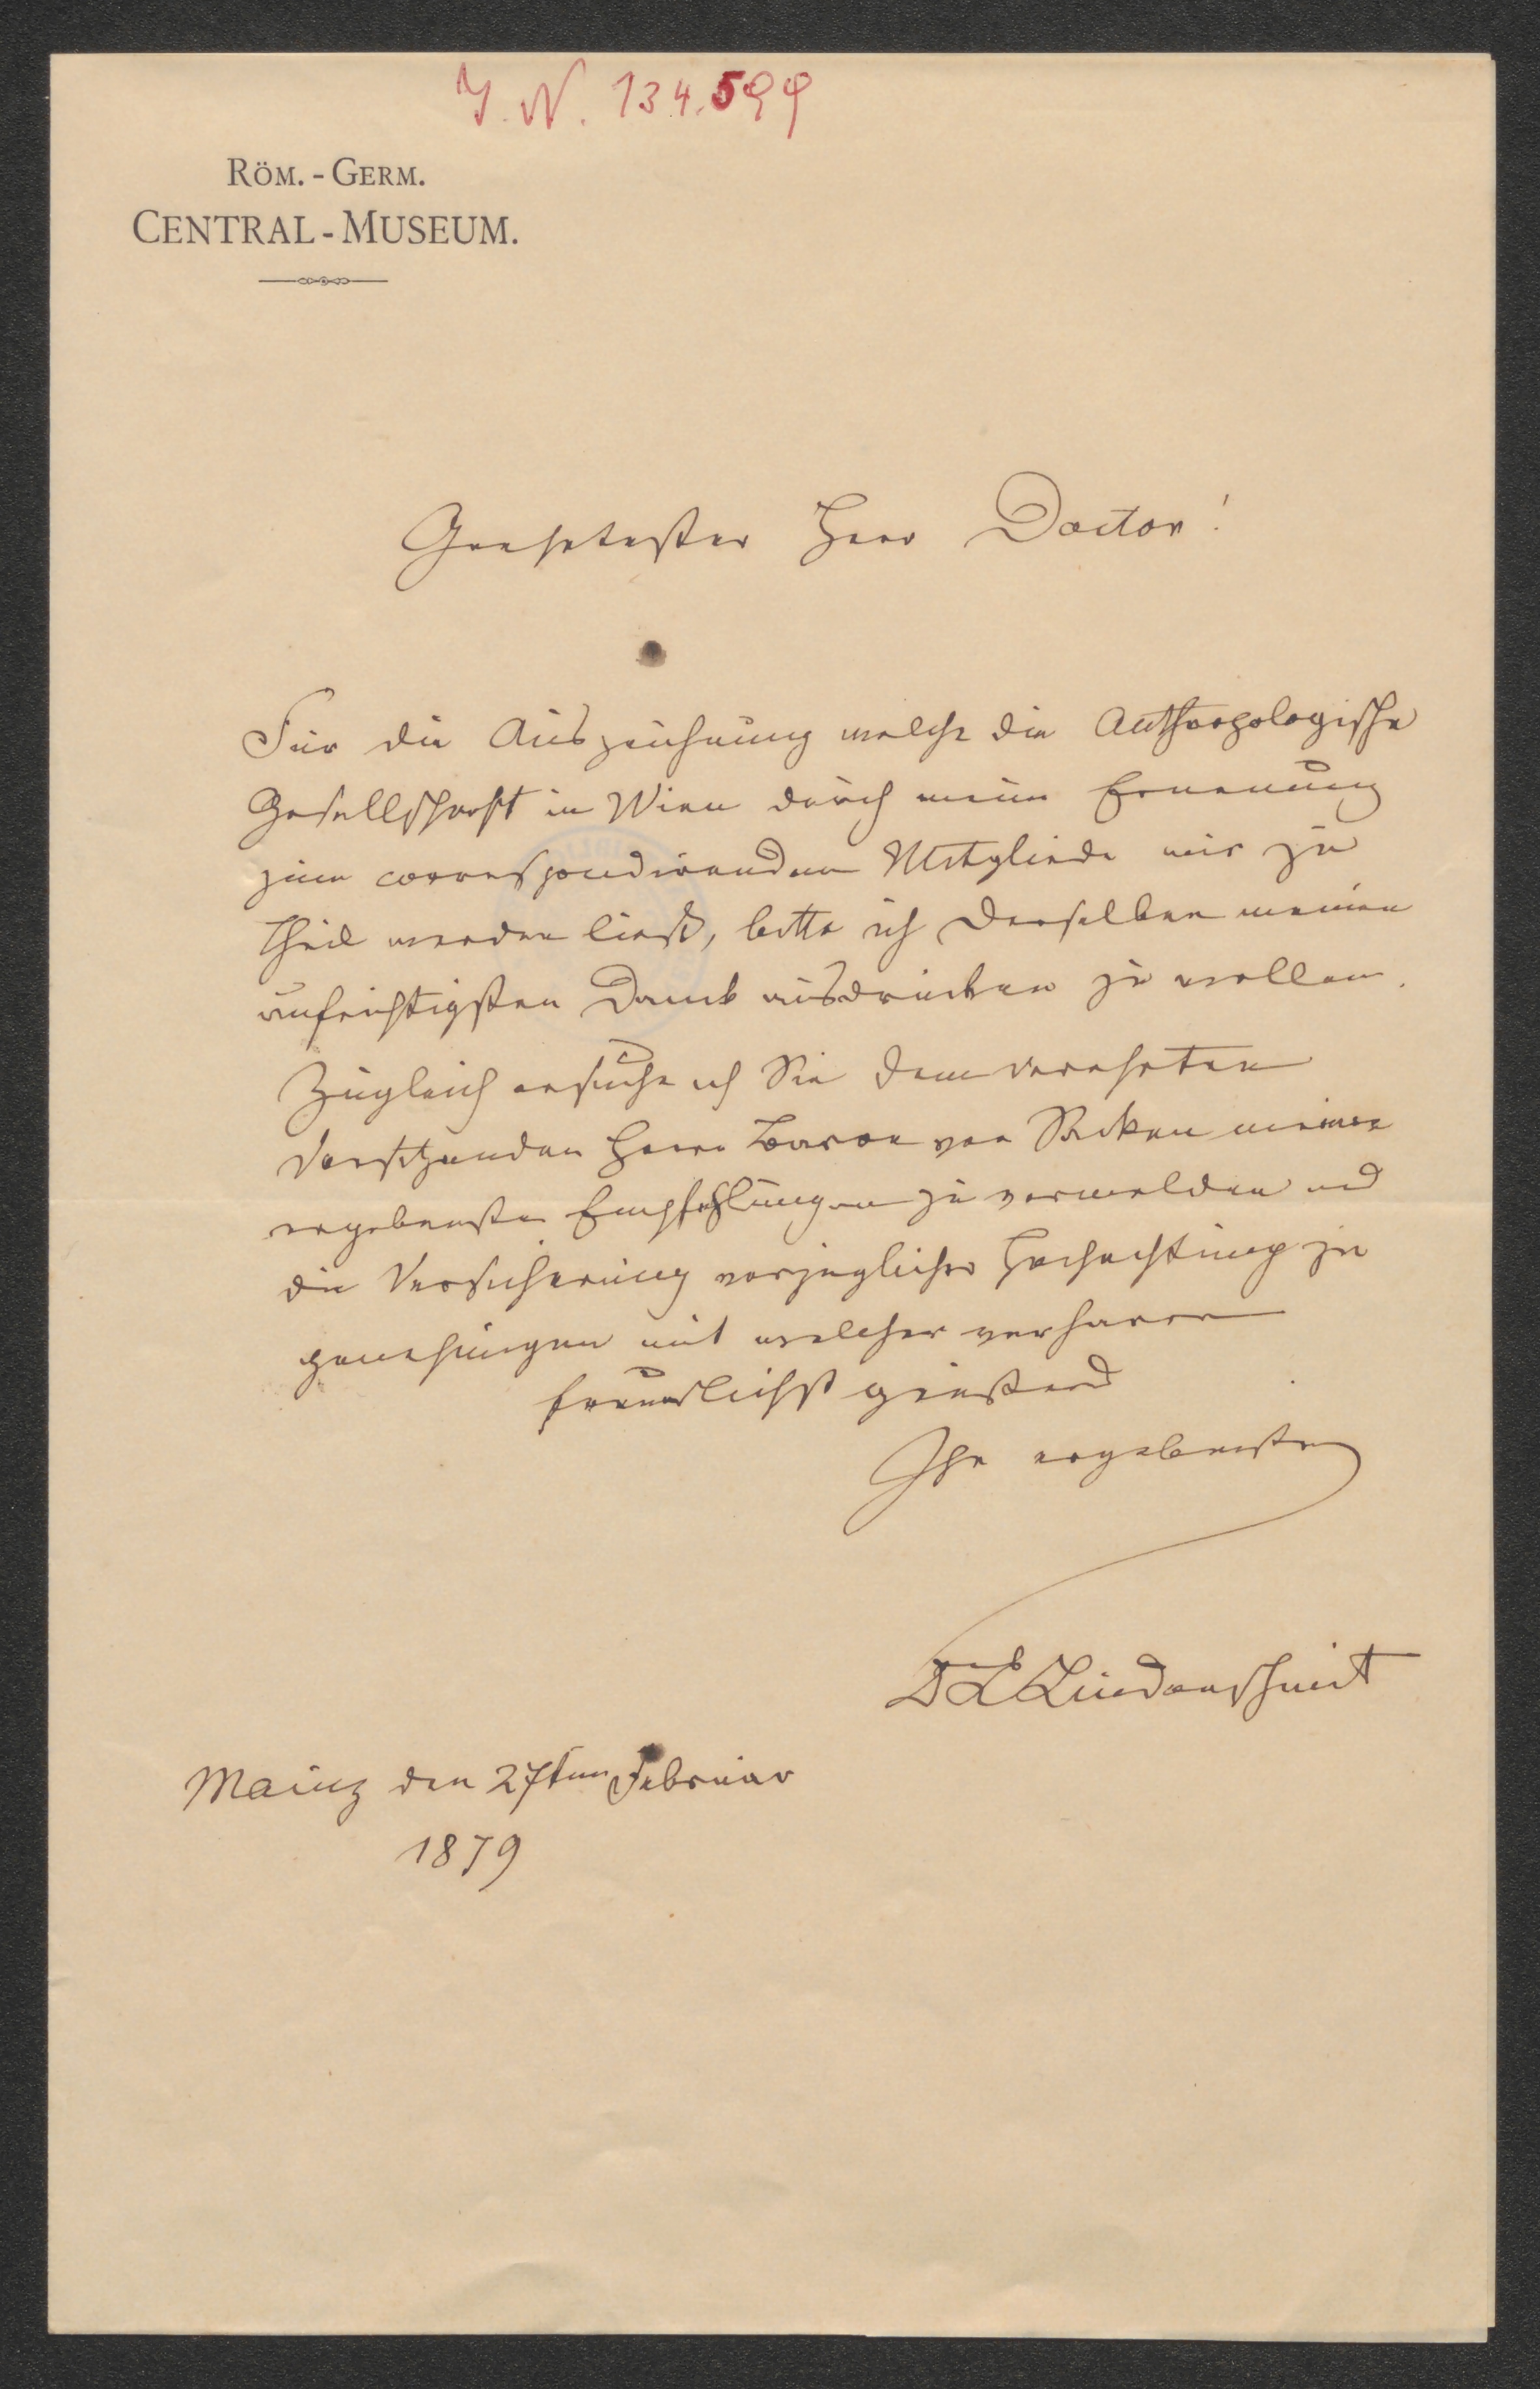 I. N. 134.599
RÖM.-GERM.
CENTRAL-MUSEUM.
Geehrtester Herr Doctor!
Für die Auszeichnung welche die Anthropologische
Gesellschaft in Wien durch meine Ernennung
zum correspondirenden Mitgliede mir zu
Theil werden ließ, bitte ich derselben meinen
aufrichtigsten Dank ausdrücken zu wollen.
Zugleich ersuche ich Sie dem verehrten
Vorsitzenden Herrn Baron von Sacken meine
ergebensten Empfehlungen zu vermelden und
die Versicherung vorzüglicher Hochachtung zu
genehmigen mit welcher verharre
freundlichst grüßend
Ihr ergebenster
Dr L Lindenschmit
Mainz den 27ten Februar
1879